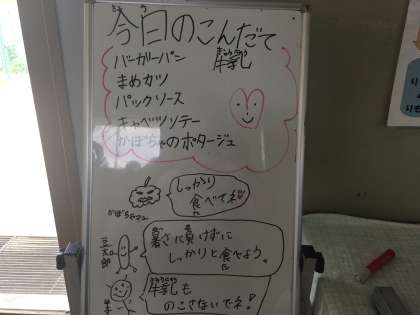 今日のこんだて
バーガーパン 牛乳
まめカツ
パックソース
キャベツソテー
かぼちゃのポタージュ
しっかり
食べてネ
かぼちゃマン
豆太郎
暑さに負けずに
しっかりと食べよう。
牛乳も
のこさないでネ!